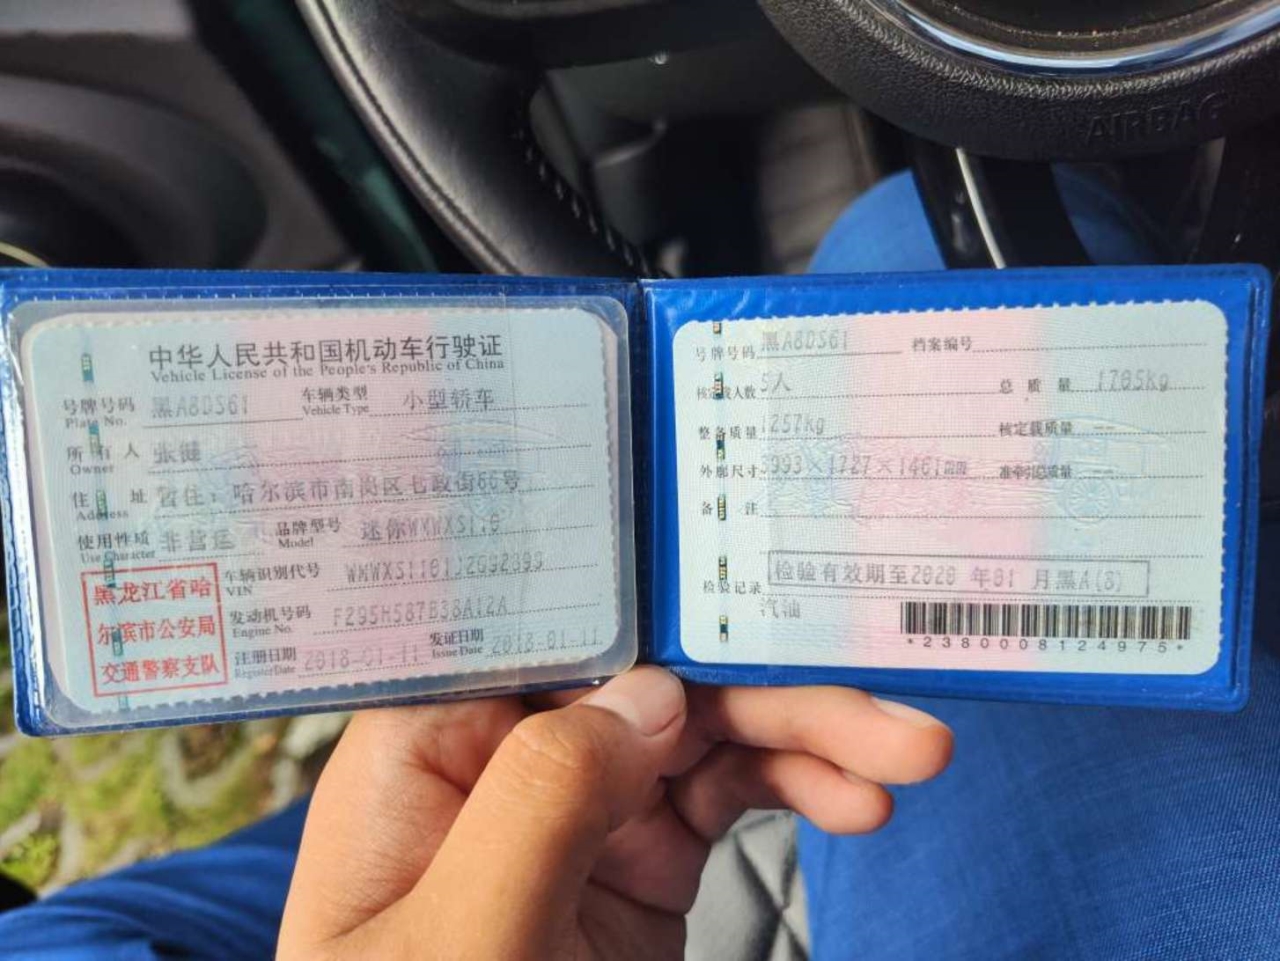 AIRBAG
中华人民共和国机动车行驶证
Vehicle License of the People's Republic of China
号牌号码 黑A8DS61 车辆类型 小型轿车
Plate No. Vehicle Type
所有人 张健
Owner
住址 暂住：哈尔滨市南岗区七政街66号
Address
使用性质 非营运 品牌型号 迷你WMWXS110
Use Character Model
黑龙江省哈
尔滨市公安局
交通警察支队
车辆识别代号
VIN
发动机号码 F295H587B38A12A
Engine No.
注册日期 2018-01-11 发证日期 2018-01-11
Register Date Issue Date
号牌号码 黑A8DS61 档案编号
核定载人数 5人 总质量 1705kg
整备质量 1257kg 核定载质量 --
外廓尺寸 3993×1727×1461mm 准牵引总质量 --
备注
检验记录 检验有效期至2020年01月黑A(8)
汽油
*2380008124975*